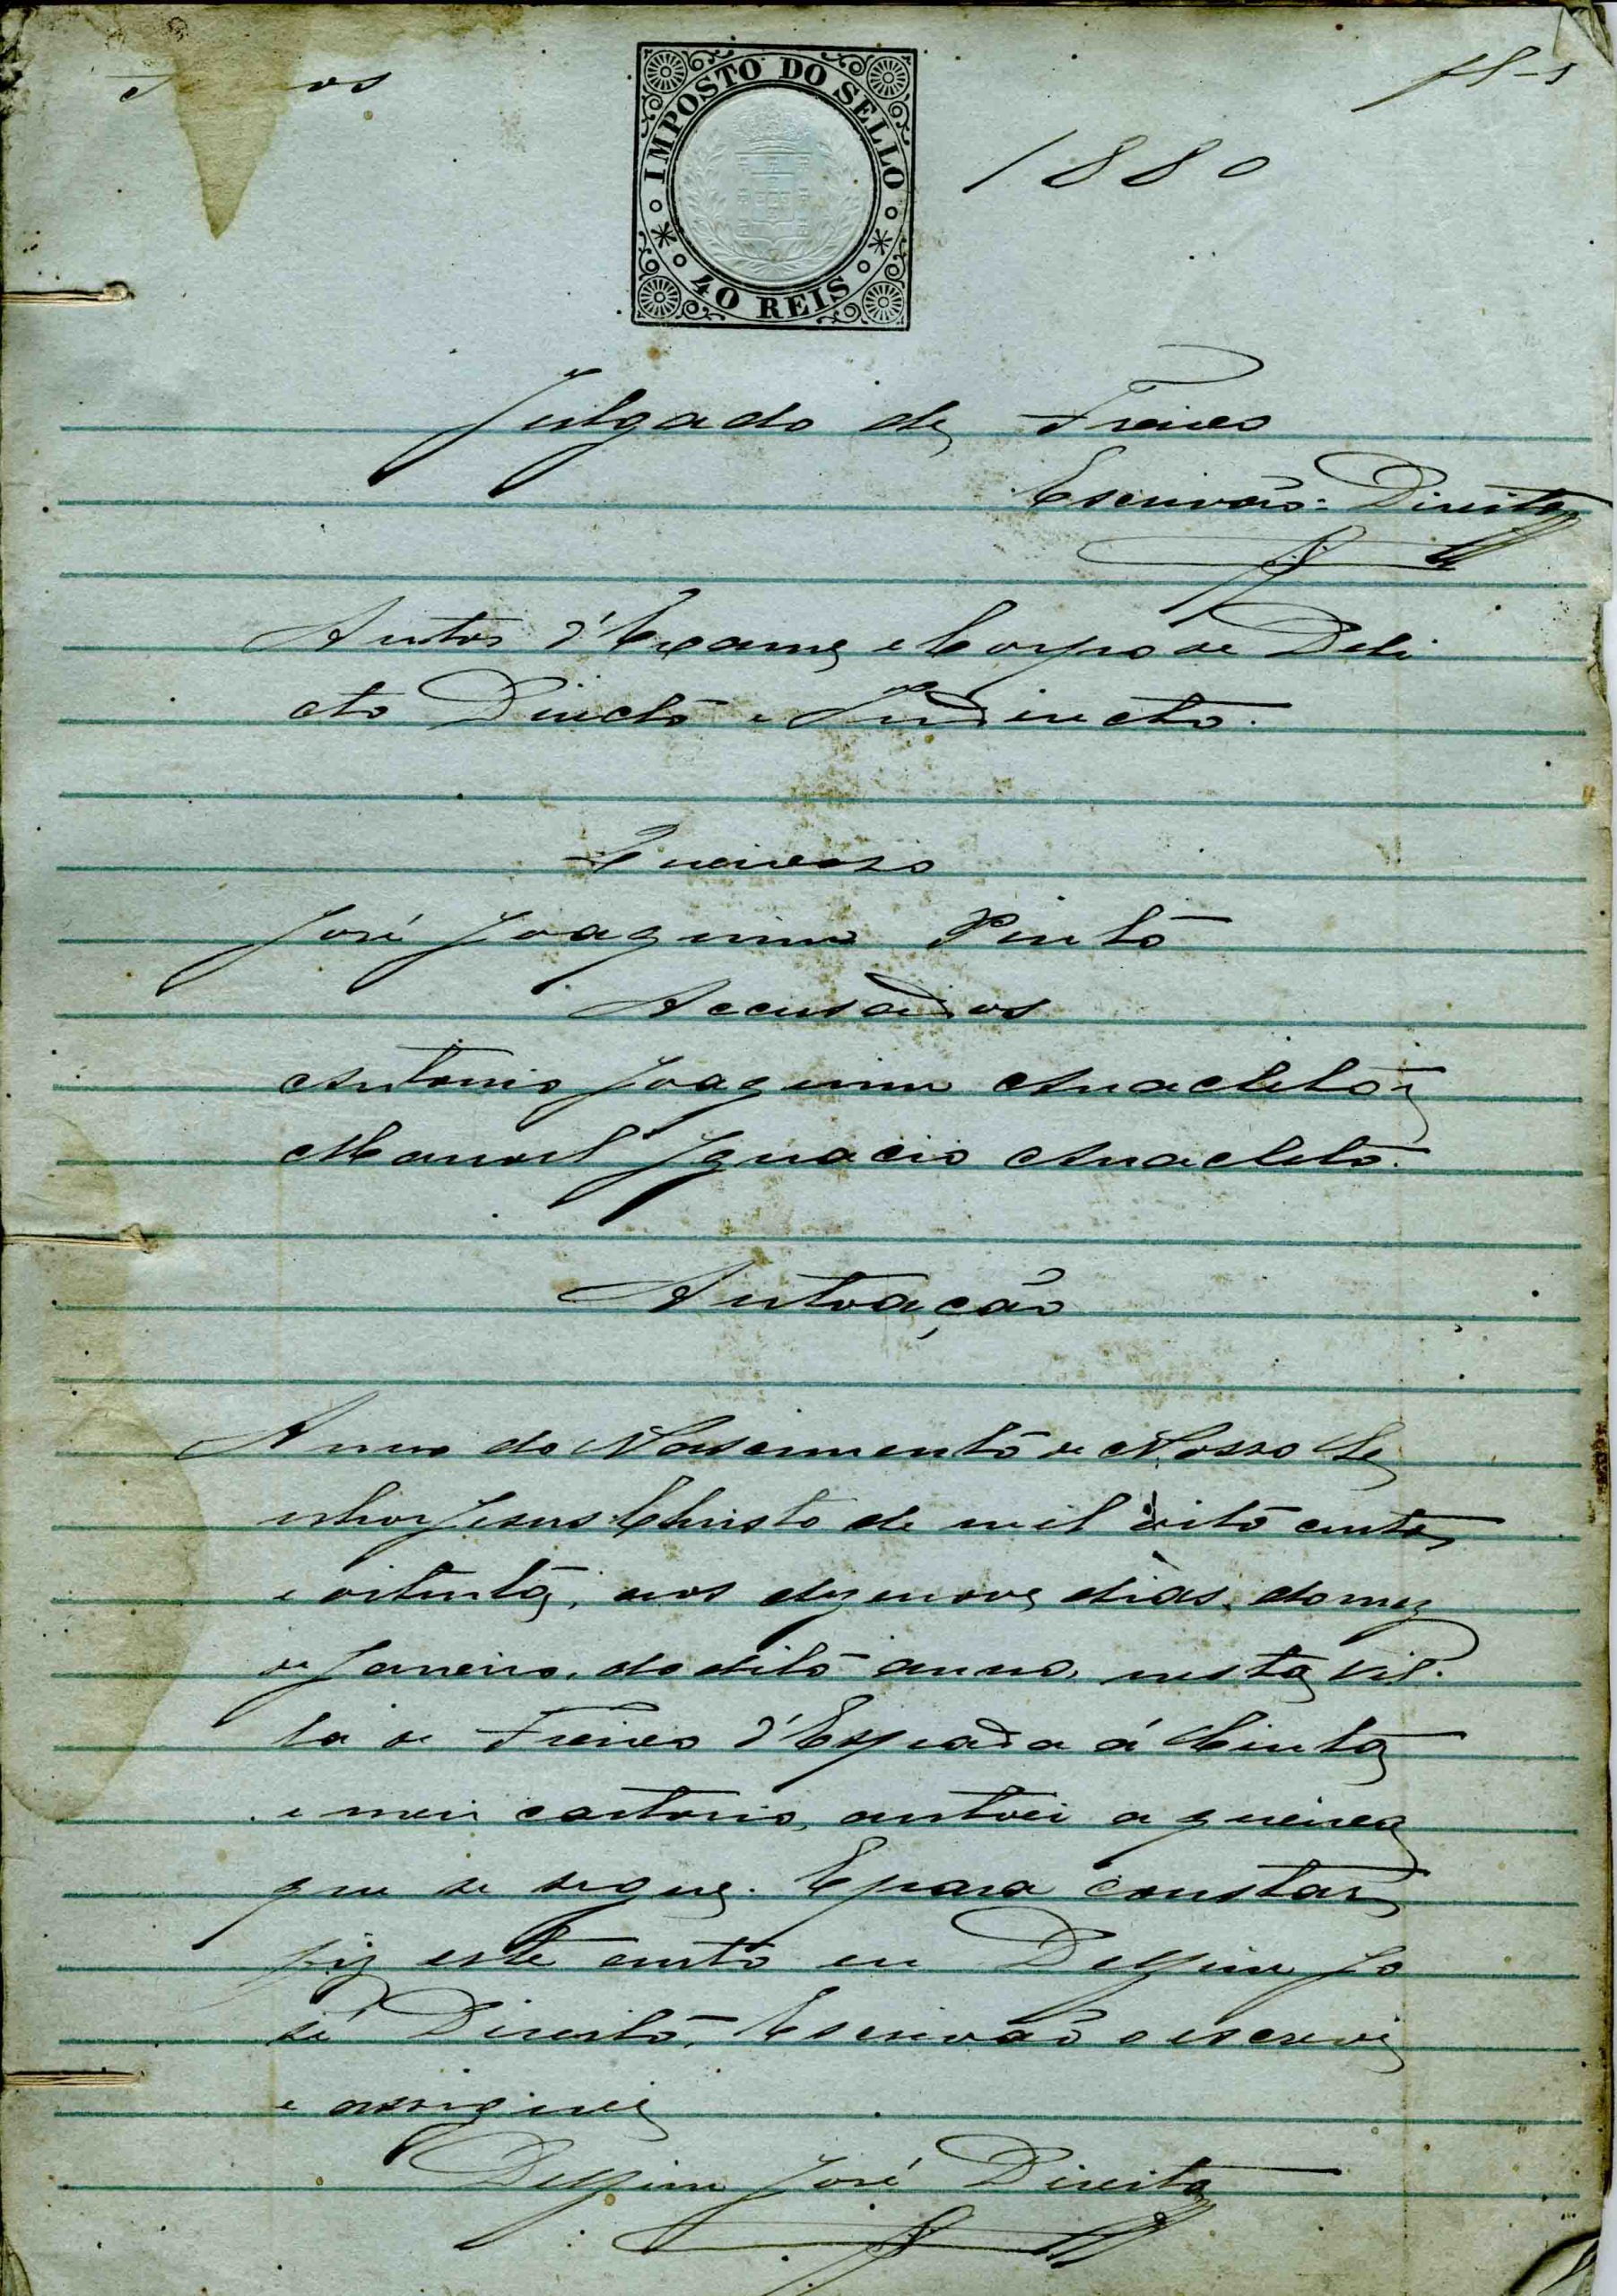 fl-1
IMPOSTO DO SELLO
40 REIS
1880
Julgado de Freixo
Escrivão: Direito
Autos d'Exame e Corpo de Deli
cto Directo e Indirecto.
Queixoso
José Joaquim Pinto
Accusados
Antonio Joaquim Anacleto e
Manoel Ignacio Anacleto.
Autoação
Anno do Nascimento de Nosso Se
nhor Jesus Christo de mil oito centos
e oitenta, aos dezenove dias do mez
de Janeiro, do dito anno, nesta vil-
la de Freixo d'Espada á Cinta
e meu cartorio, autoei a queixa
que se segue. E para constar
fiz este auto eu Delfim Jo
sé Direito, Escrivão o escrevi
e assignei
Delfim José Direito